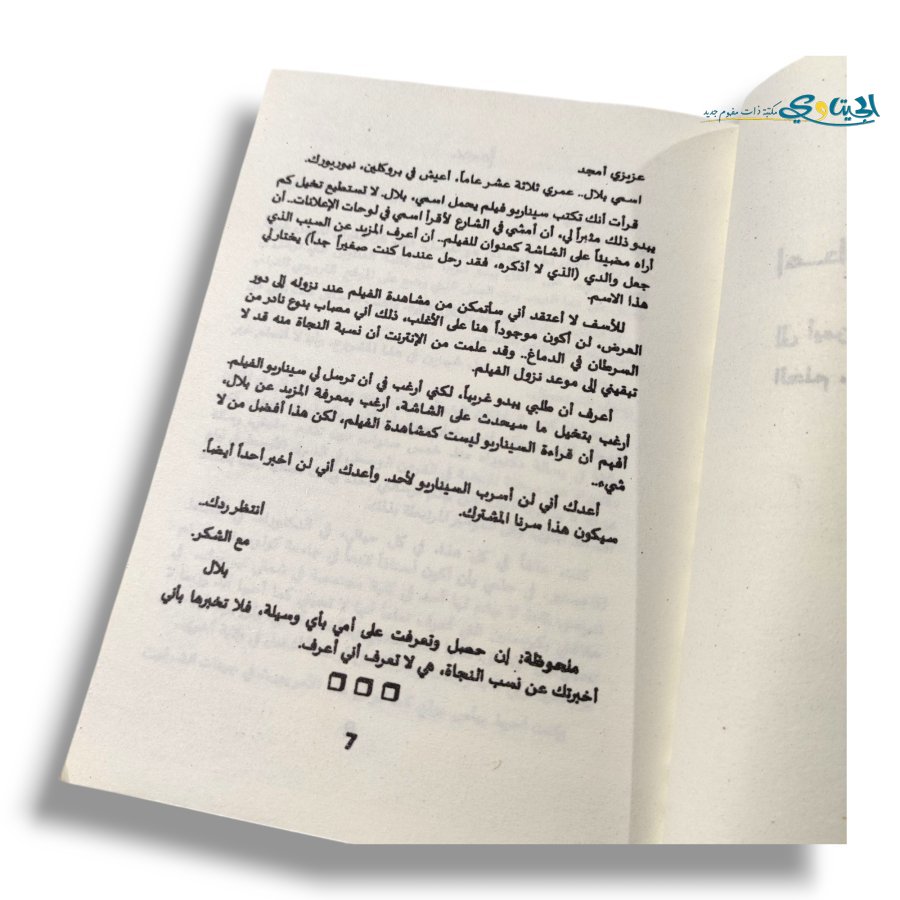 الجيتاوي
مكتبة ذات مفهوم جديد
عزيزي أمجد
اسمي بلال.. عمري ثلاثة عشر عاماً، أعيش في بروكلين، نيوريورك.
قرأت أنك تكتب سيناريو فيلم يحمل اسمي، بلال. لا تستطيع تخيل كم
يبدو ذلك مثيراً لي، أن أمشي في الشارع لأقرأ اسمي في لوحات الإعلانات.. أن
أراه مضيئاً على الشاشة كعنوان للفيلم.. أن أعرف المزيد عن السبب الذي
جعل والدي (الذي لا أذكره، فقد رحل عندما كنت صغيراً جداً) يختار لي
هذا الاسم.
للأسف لا أعتقد أني سأتمكن من مشاهدة الفيلم عند نزوله إلى دور
العرض، لن أكون موجوداً هنا على الأغلب، ذلك أني مصاب بنوع نادر من
السرطان في الدماغ.. وقد علمت من الإنترنت أن نسبة النجاة منه قد لا
تبقيني إلى موعد نزول الفيلم.
أعرف أن طلبي يبدو غريباً، لكني أرغب في أن ترسل لي سيناريو الفيلم.
أرغب بتخيل ما سيحدث على الشاشة، أرغب بمعرفة المزيد عن بلال،
أفهم أن قراءة السيناريو ليست كمشاهدة الفيلم، لكن هذا أفضل من لا
شيء..
أعدك أني لن أسرب السيناريو لأحد.. وأعدك أني لن أخبر أحداً أيضاً.
سيكون هذا سرنا المشترك.
أنتظر ردك..
مع الشكر.
بلال
ملحوظة: إن حصل وتعرفت على أمي بأي وسيلة، فلا تخبرها بأني
أخبرتك عن نسب النجاة، هي لا تعرف أني أعرف.
7